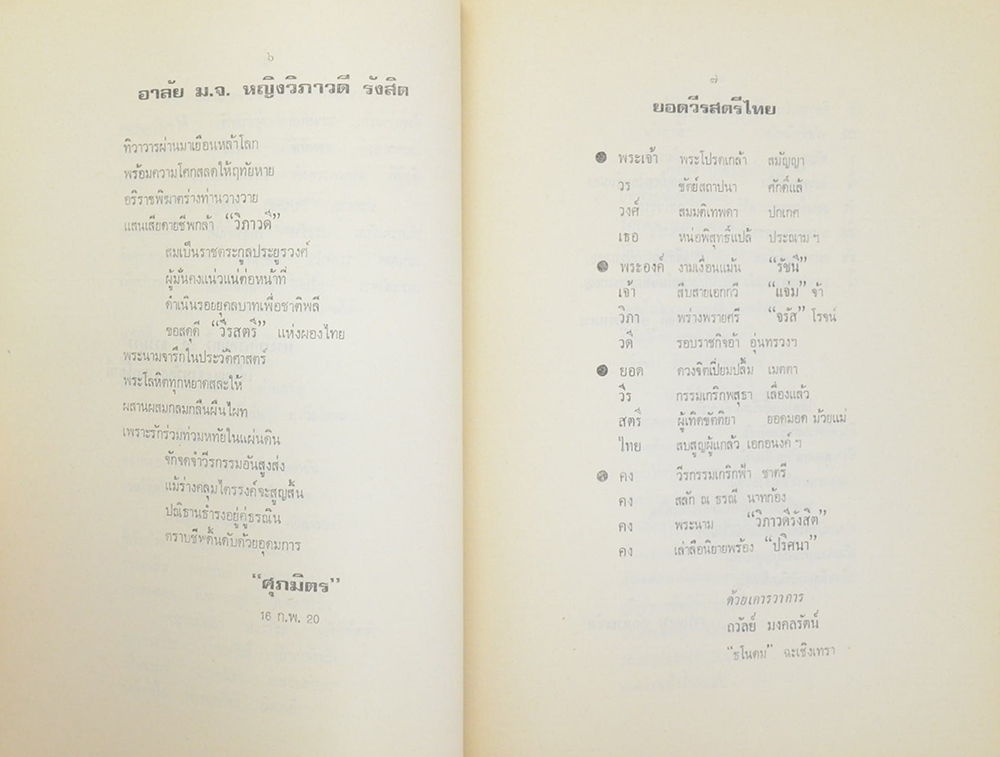 ๖
อาลัย ม.จ. หญิงวิภาวดี รังสิต
ทิวาวารผ่านมาเยือนหล้าโลก
พร้อมความโศกสลดให้ฤทัยหาย
อริราชพิฆาตร่างท่านวางวาย
แสนเสียดายชีพกล้า “วิภาวดี”
สมเป็นราชตระกูลประยูรวงศ์
ผู้มั่นคงแน่วแน่ต่อหน้าที่
ดำเนินรอยยุคลบาทเพื่อชาติพลี
ขอสดุดี “วีรสตรี” แห่งผองไทย
พระนามจารึกในประวัติศาสตร์
พระโลหิตทุกหยาดสละให้
ผสานผสมกลมกลืนผืนไผท
เพราะรักร่วมท่วมหทัยในแผ่นดิน
จักจดจำวีรกรรมอันสูงส่ง
แม้ร่างคลุมไตรรงค์จะสูญสิ้น
ปณิธานธำรงอยู่คู่ธรณิน
ตราบชีพดิ้นดับด้วยอุดมการ
“ศุภมิตร”
16 ก.พ. 20
๗
ยอดวีรสตรีไทย
พระเจ้า พระโปรดเกล้า สมัญญา
วร ขัตย์สถาปนา ศักดิ์แล้
วงศ์ สมมติเทพดา ปกเกศ
เธอ หน่อพิสุทธิ์แปล้ ประณาม ฯ
พระองค์ งามเงื่อนแม้น “รัชนี”
เจ้า สืบสายเอกกวี “แจ่ม” จ้า
วิภา พร่างพรายศรี “จรัส” โรจน์
วดี รอบราชกิจอ้า อุ่นทรวงฯ
ยอด ดวงจิตเปี่ยมปลื้ม เมตตา
วีร กรรมเกริกพสุธา เลื่องแล้ว
สตรี ผู้เทิดขัตติยา ยอดมอด ม้วยแม่
ไทย ลบสูญผู้แกล้ว เอกอนงค์ ฯ
คง วีรกรรมเกริกฟ้า ชาตรี
คง สลัก ณ ธรณี นาทก้อง
คง พระนาม “วิภาวดีรังสิต”
คง เล่าลือนิยายพร้อง “ปริศนา”
ด้วยเคารวาการ
ถวัลย์ มงคลรัตน์
“ธโนดม” ฉะเชิงเทรา